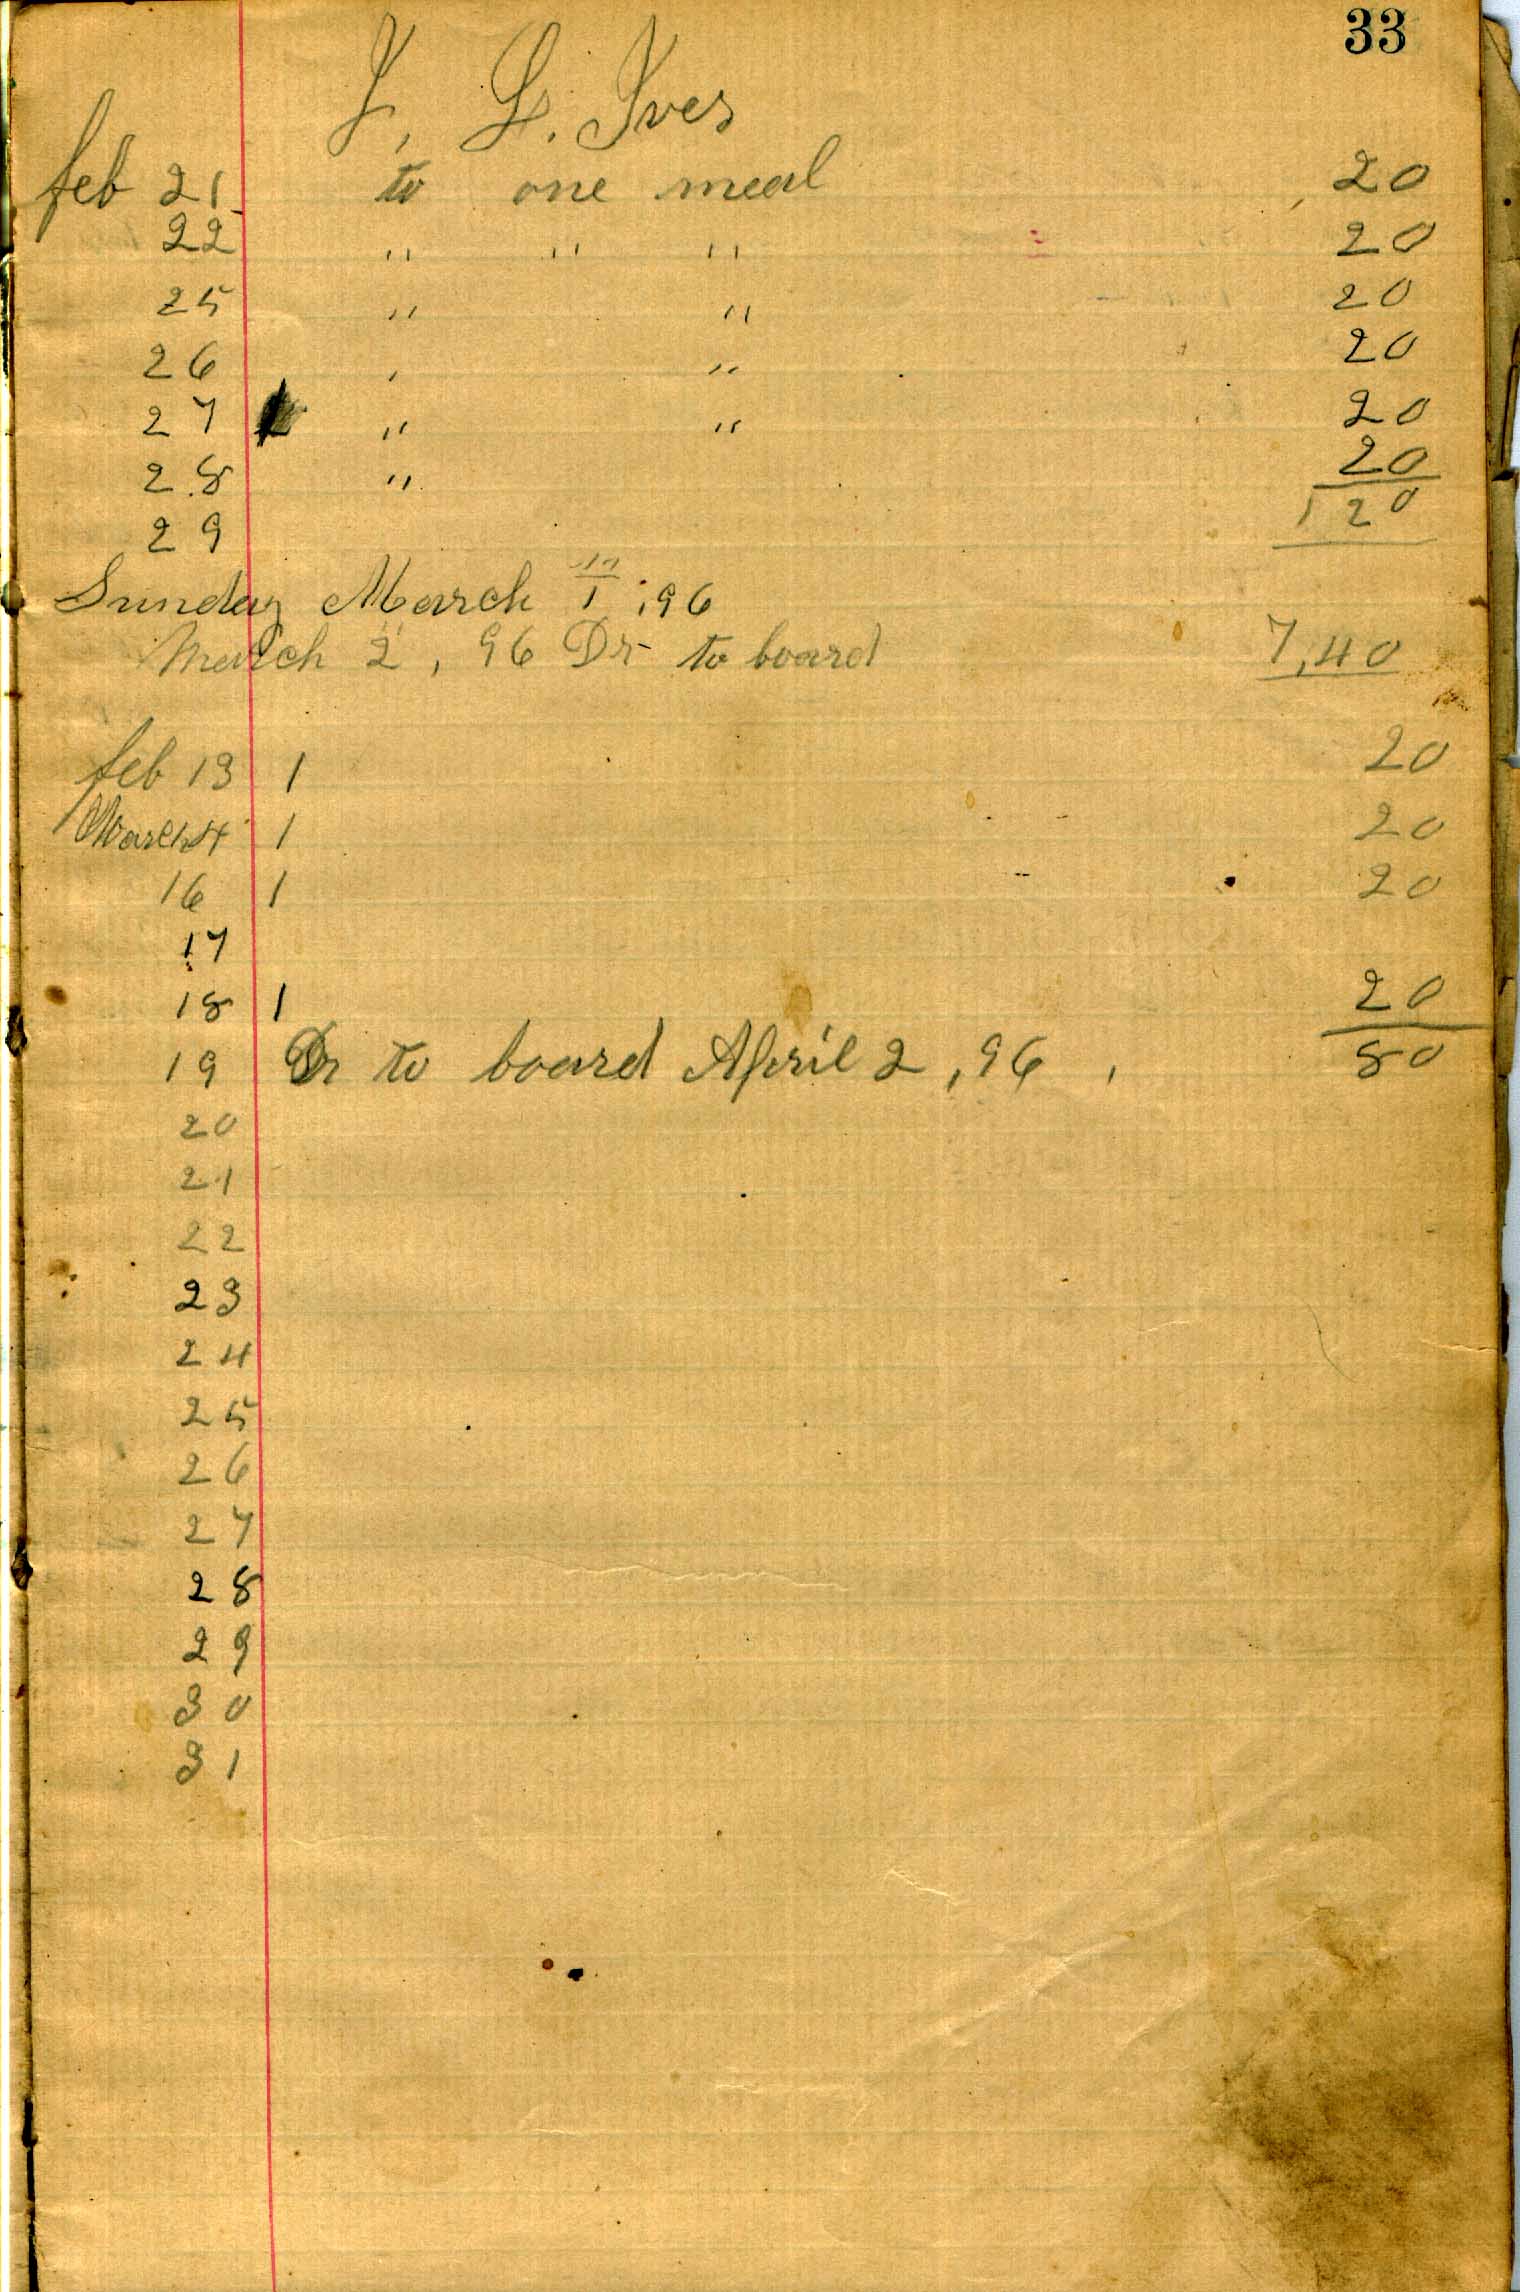 33
J. L. Ives
feb 21 to one meal ,20
22 " " " 20
25 " " 20
26 , " 20
27 " " 20
28 " 20
120
29
Sunday March 1 ,96
March 2, 96 Dr to board 7,40
feb 13 1 20
March 4 1 20
16 1 20
17
18 1 20
19 Dr to board April 2, 96, 80
20
21
22
23
24
25
26
27
28
29
30
31